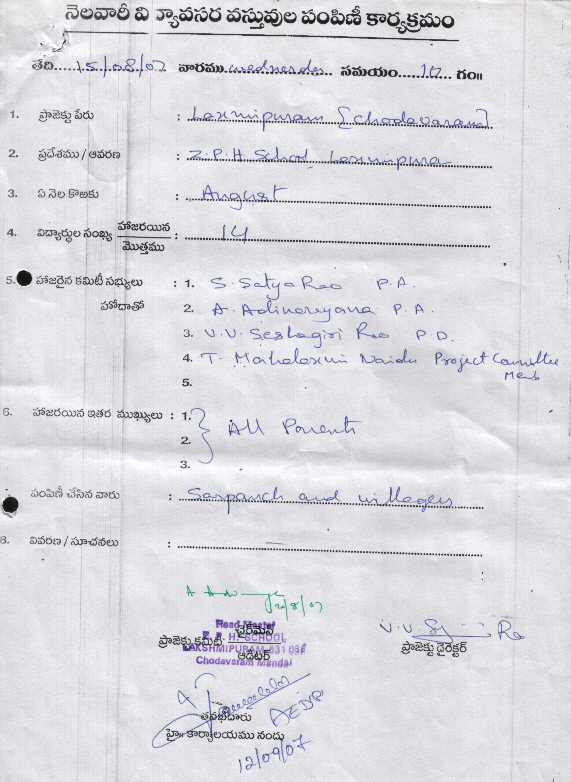 నెలవారీ వి వ్యావసర వస్తువుల పంపిణీ కార్యక్రమం
తేది.....15/08/07 వారము wednesday.. సమయం.....10 గం॥
1. ప్రాజెక్టు పేరు : Laxmipuram [Chodavaram]
2. ప్రదేశము / ఆవరణ : Z.P.H School Laxmipura
3. ఏ నెల కొఱకు : August
4. విద్యార్థుల సంఖ్య హాజరయిన : 14
మొత్తము
5. హాజరైన కమిటీ సభ్యులు : 1. S. Satya Rao P.A.
హోదాతో 2. A. Adinarayana P.A.
3. V.V. Seshagiri Rao P.D.
4. T. Mahalaxmi Naidu Project Committee
Memb
5.
6. హాజరయిన ఇతర ముఖ్యులు : 1.
2. All Parents
3.
పంపిణీ చేసిన వారు : Sarpanch and villagers
8. వివరణ / సూచనలు : —
12/8/07
Head Master
ఛైర్మన్
Z. P. H. SCHOOL
ప్రాజెక్టు కమిటీ
LAKSHMIPURAM-531 036
ఆడిటర్
Chodavaram Mandal
V.V. Rao
ప్రాజెక్టు డైరెక్టర్
AEDP
తనిఖీదారు
హై॥ కార్యాలయము నందు
12/09/07